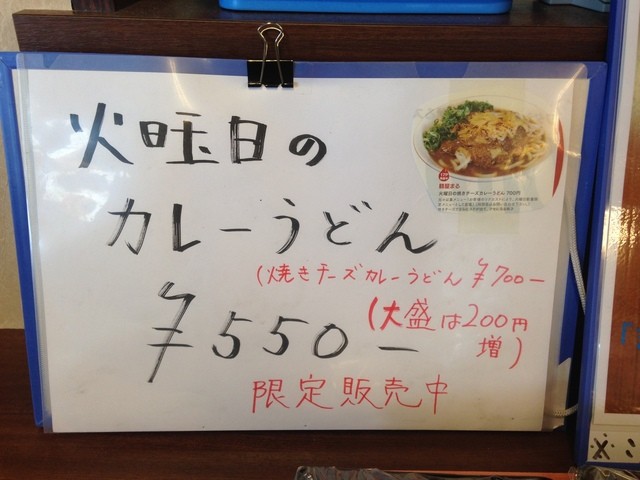 火曜日の
カレーうどん
(焼きチーズカレーうどん ¥700-
¥550-
(大盛は200円
増)
限定販売中
麺麓まる
火曜日の焼きチーズカレーうどん 700円
※こ